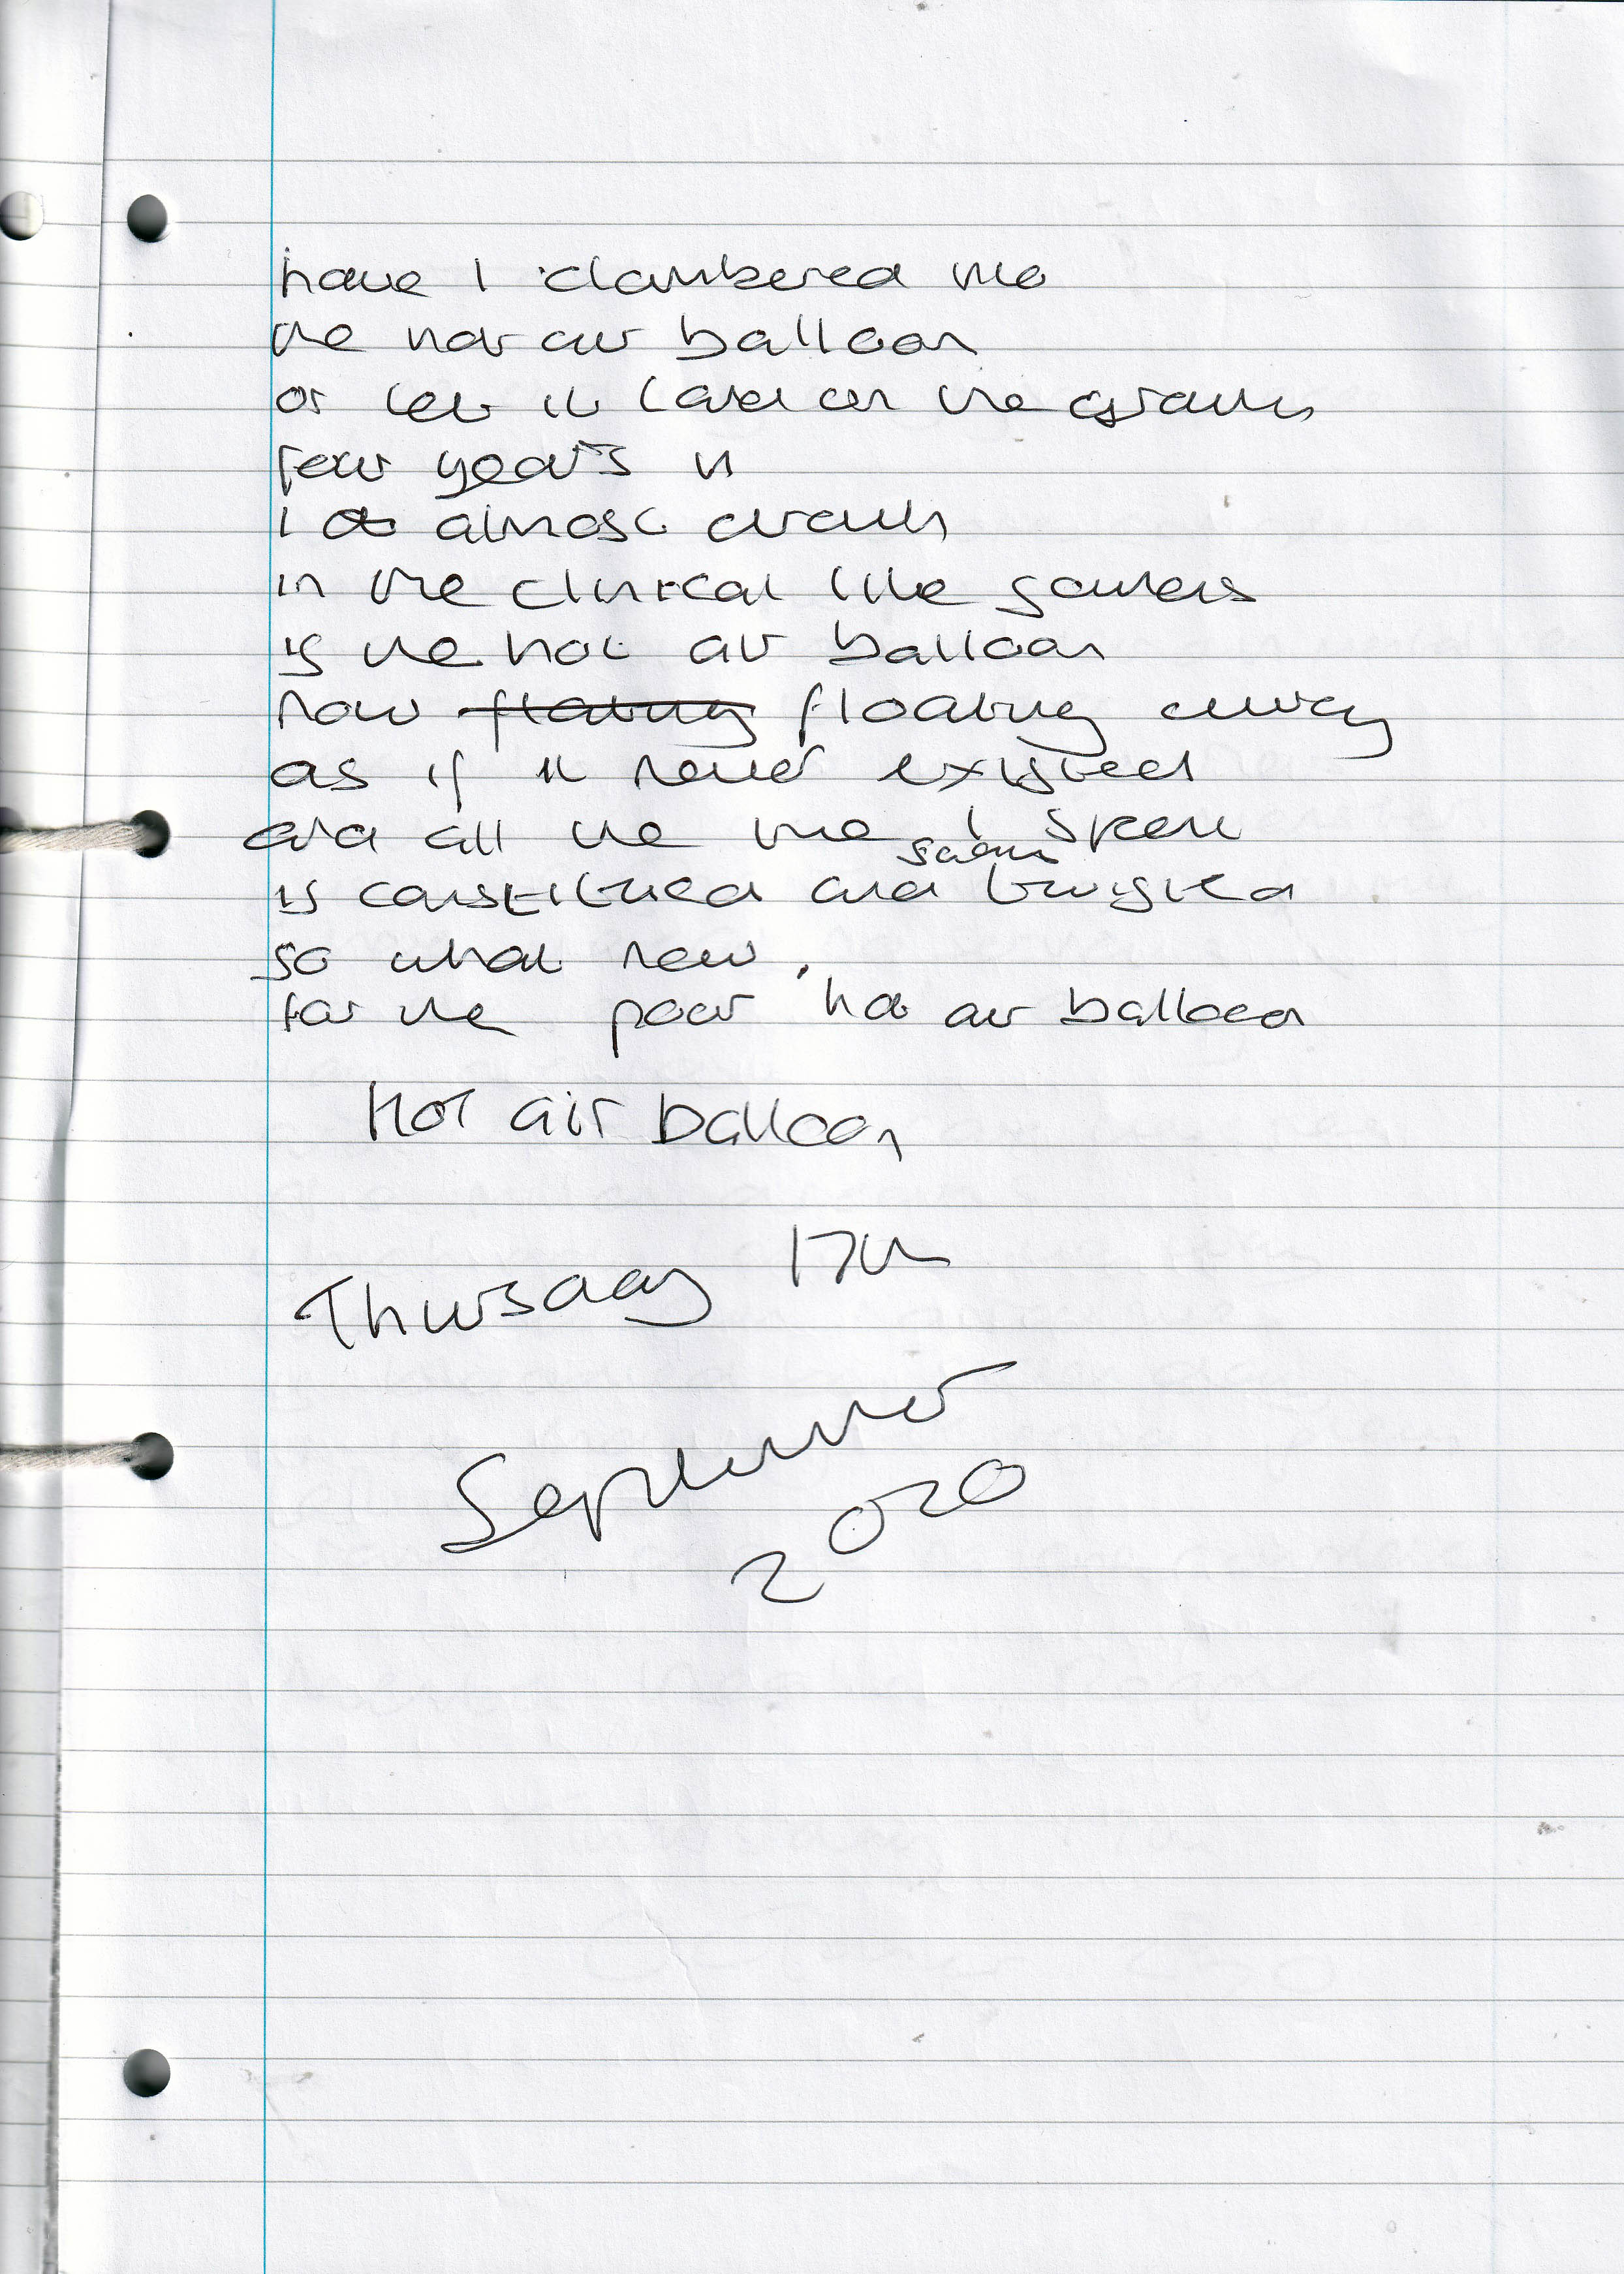 have I clambered into
the hot air balloon
or let it land on the ground
few years in
I almost drown
in the clinical like
is the hot air balloon
now floating floating away
as if it never existed
and all the time I spent
seem
is constituted and twisted
so what now
for the poor hot air balloon
Hot air balloon
Thursday 17th
September
2020